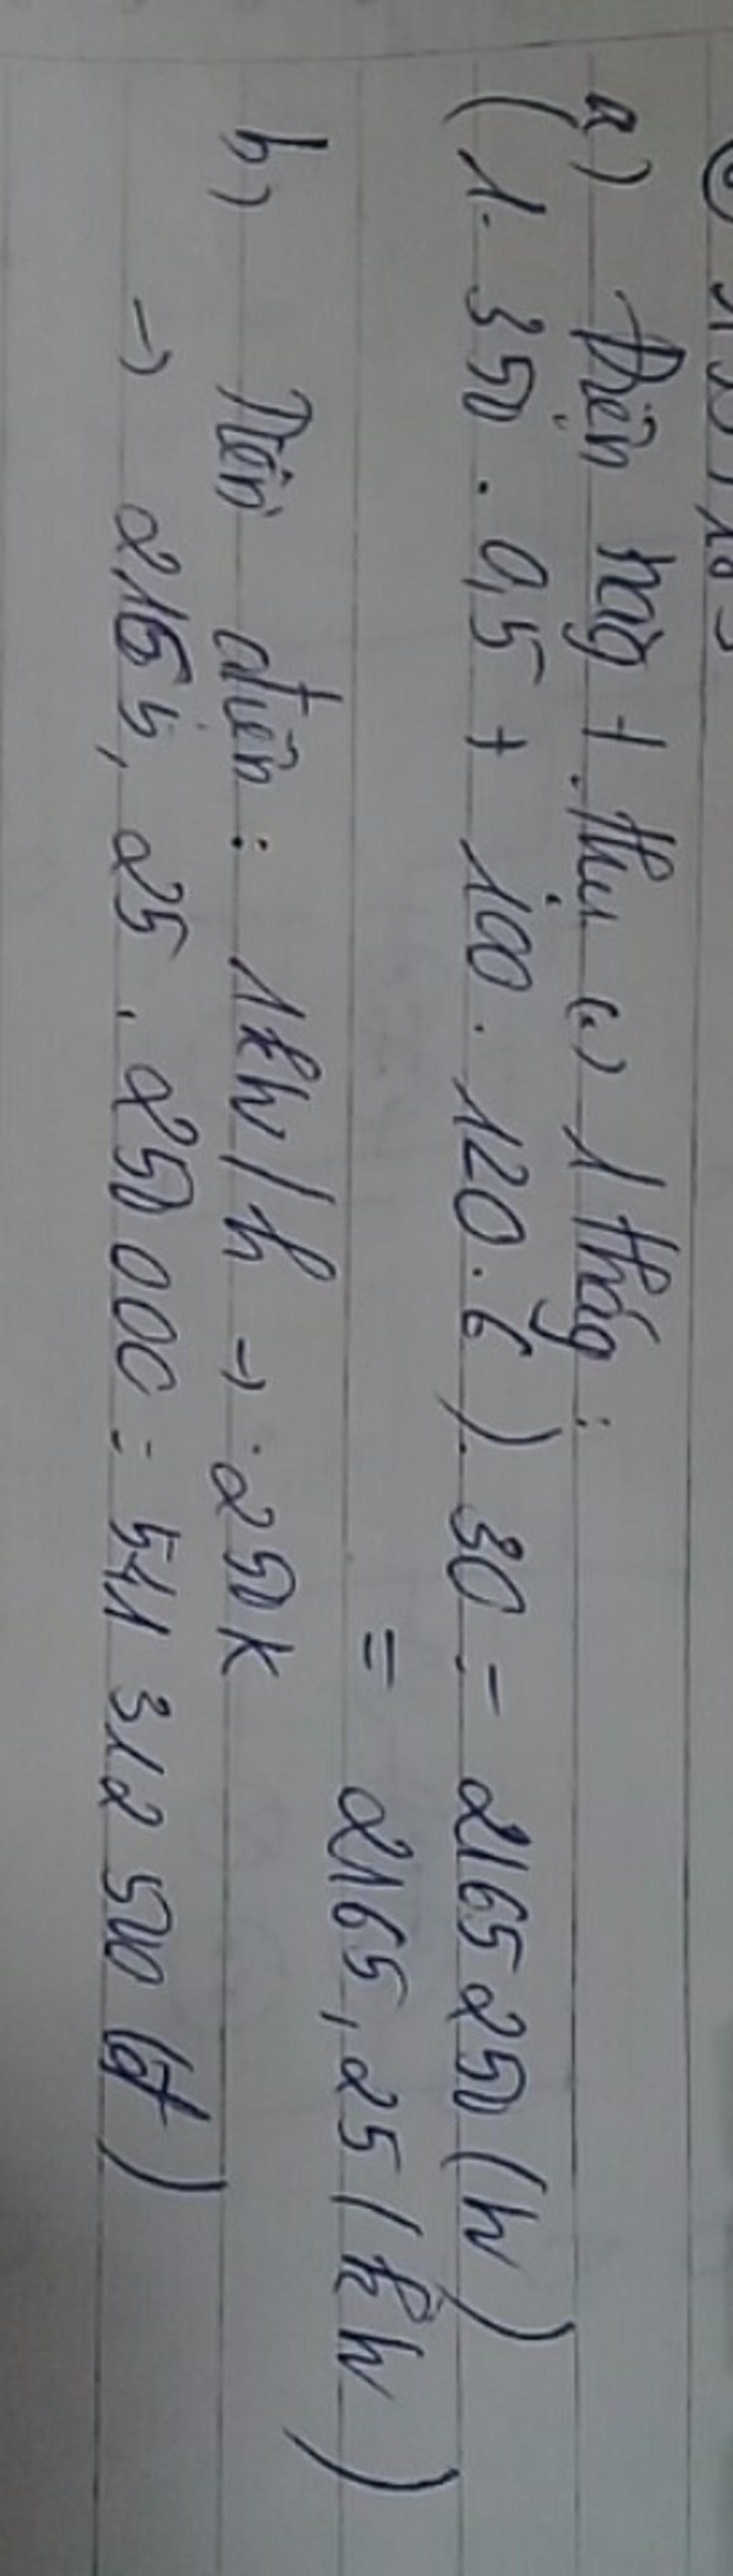 a) Điện năg t.thụ (.) 1 thág :
(1. 350 . 0,5 + 100 . 120 . 6) . 30 = 2165250 (W)
= 2165,25 (kW)
b) Tiền điện : 1kW/h → 250k
→ 2165,25 . 250 000 = 541 312 500 (đ)